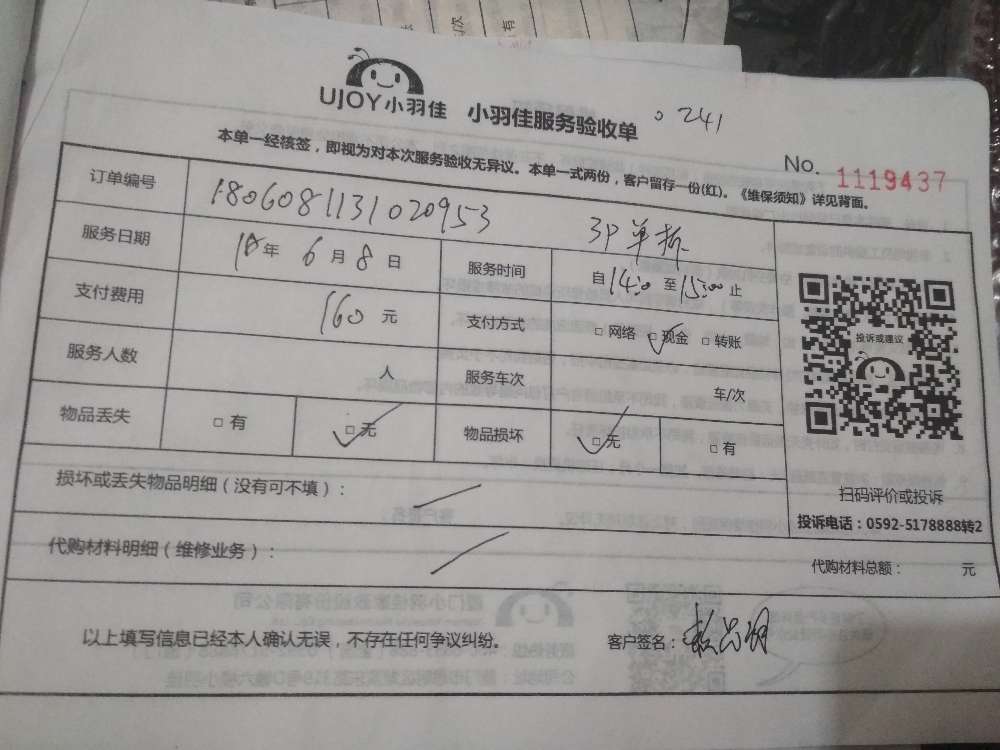 UJOY小羽佳 小羽佳服务验收单 0241
No. 1119437
本单一经核签，即视为对本次服务验收无异议。本单一式两份，客户留存一份(红)。《维保须知》详见背面。
订单编号 1806081131020953 3P单拆
服务日期 18年 6月 8日 服务时间 自14:30至15:00止
支付费用 160元 支付方式 □网络 ☑现金 □转账
服务人数 人 服务车次 车/次
物品丢失 □有 ☑无 物品损坏 ☑无 □有
投诉或建议
损坏或丢失物品明细(没有可不填)：
扫码评价或投诉
投诉电话：0592-5178888转2
代购材料明细(维修业务)：
代购材料总额： 元
以上填写信息已经本人确认无误，不存在任何争议纠纷。 客户签名：